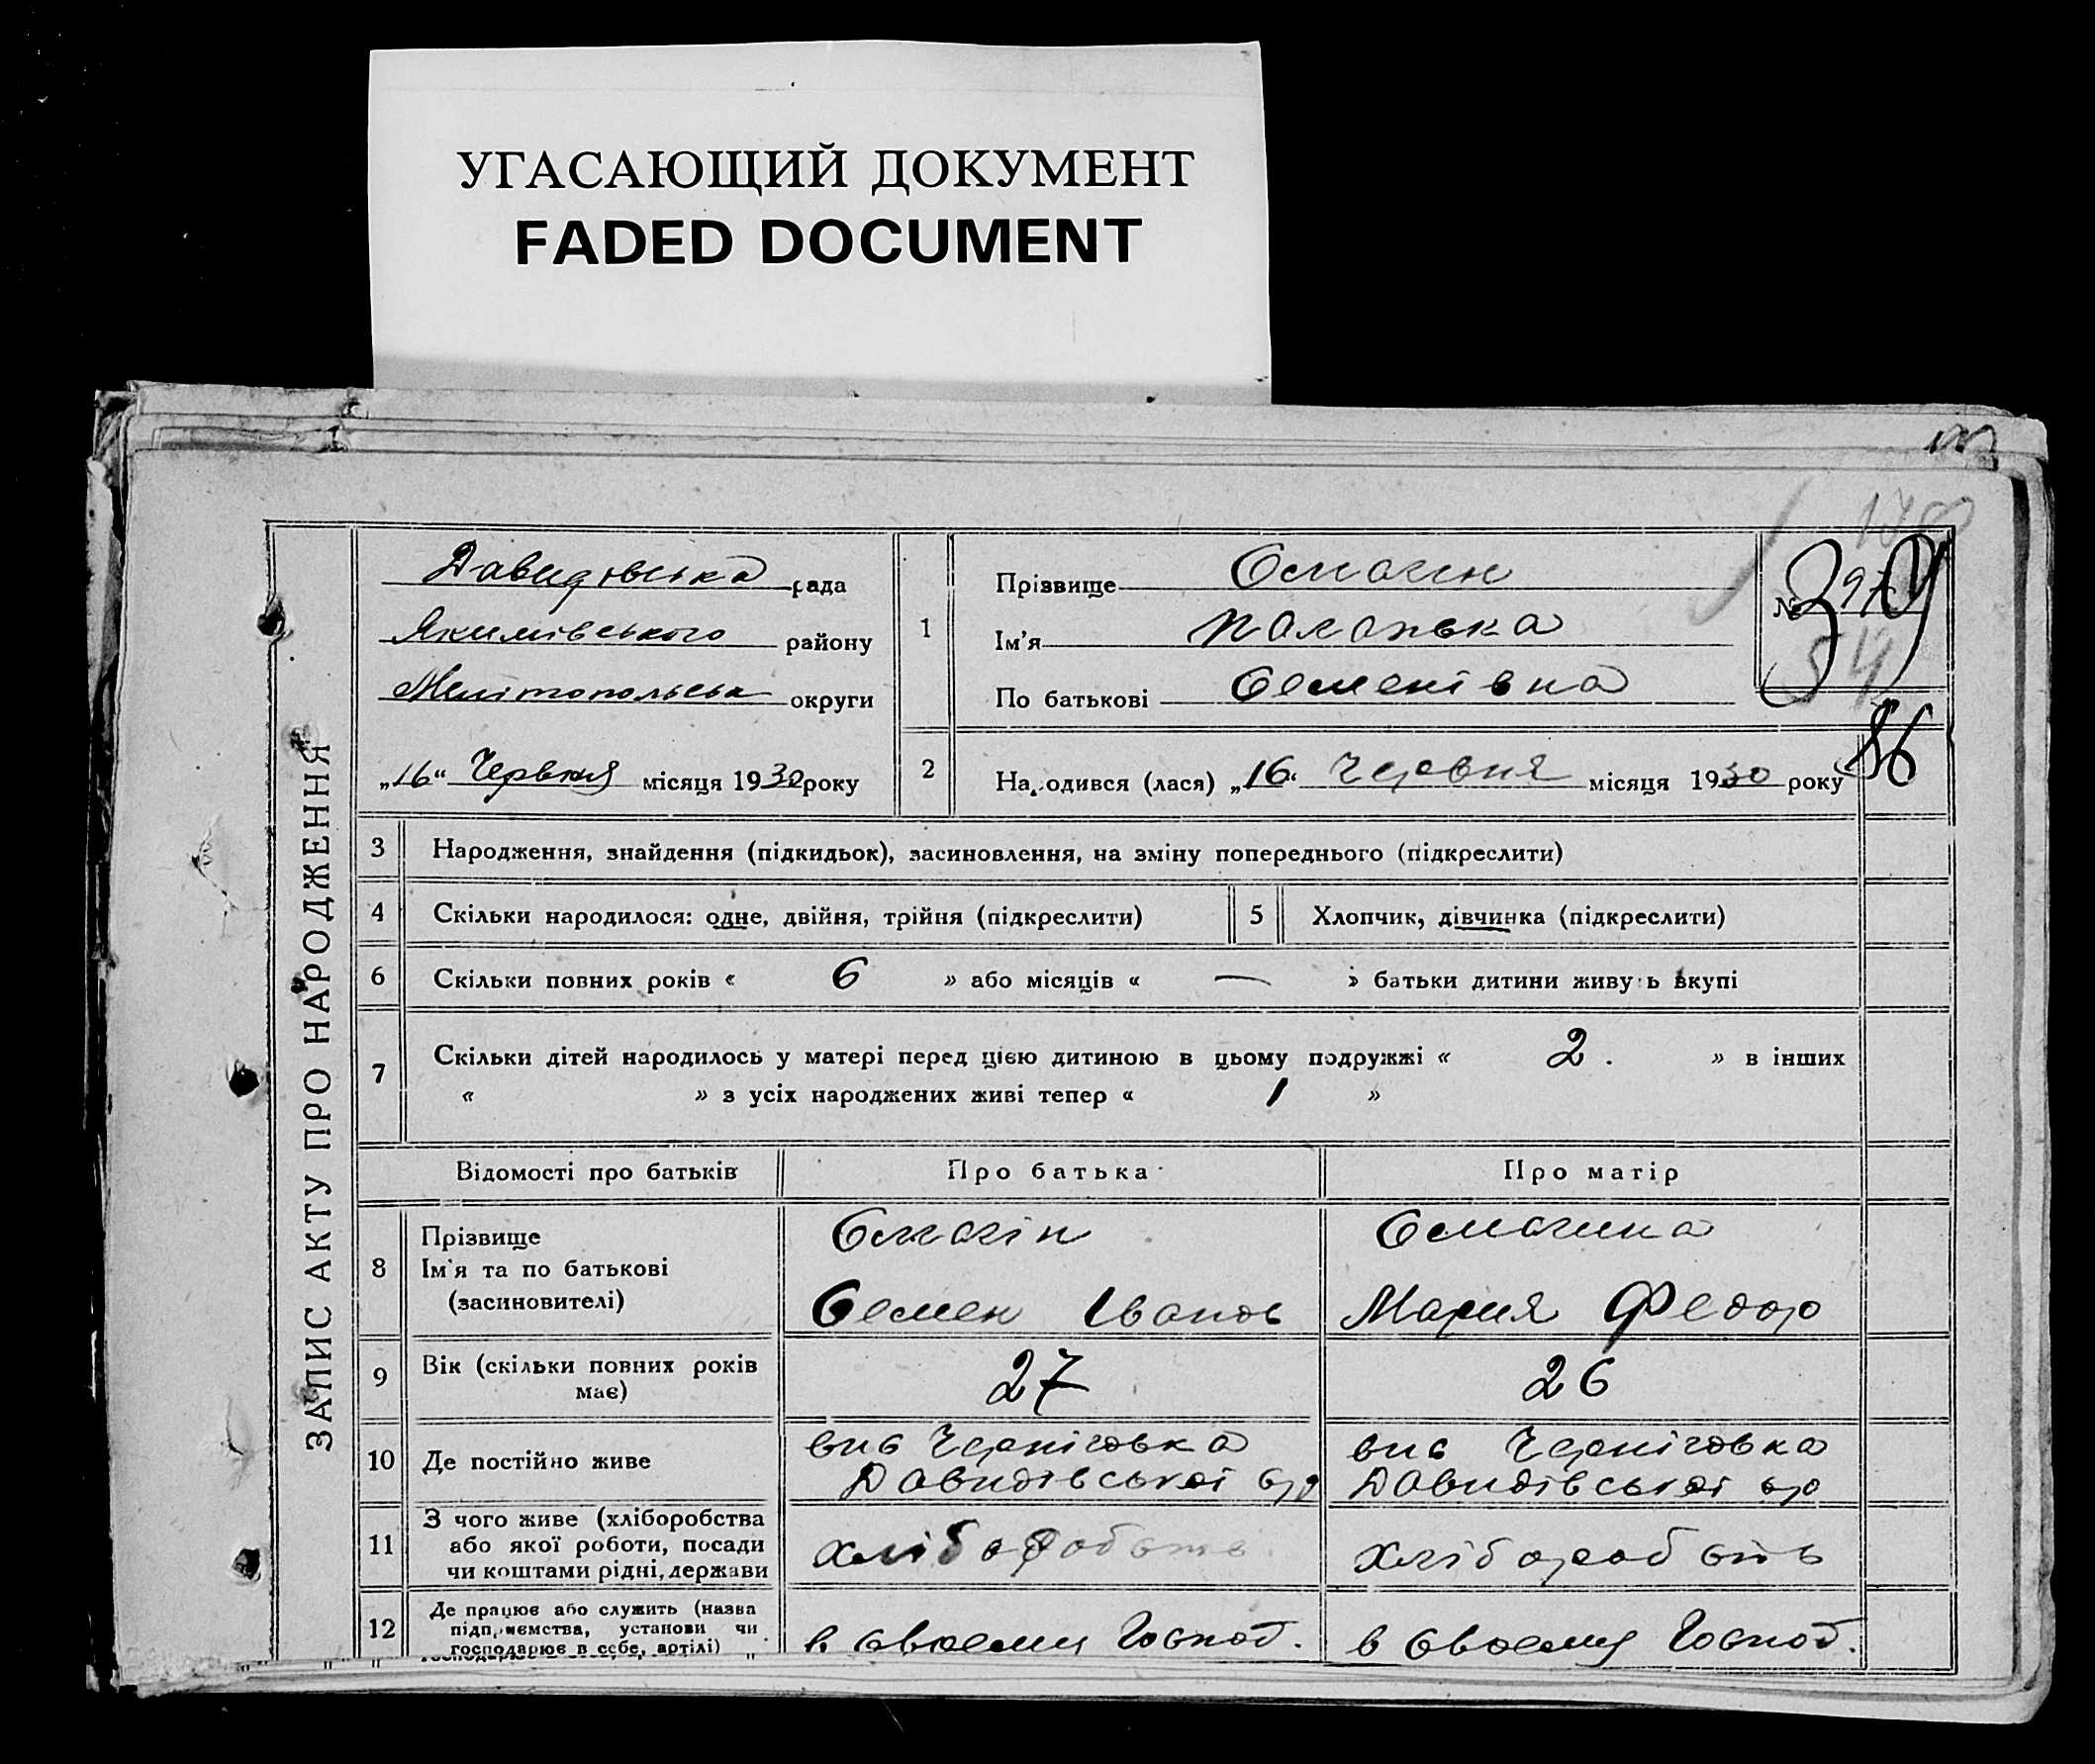 УГАСАЮЩИЙ ДОКУМЕНТ
FADED DOCUMENT
ЗАПИС АКТУ ПРО НАРОДЖЕННЯ
Давидовська рада
Якимівського района
Мелітопольськ округи
„16“ Червня місяця 1930 року
1
Прізвище Смагин
Ім’я Палажька
По батькові Семенівна
№
54
86
2
Народився (лася) „16“ Червня місяця 1930 року
3 Народження, знайдення (підкидьок), засиновлення, на зміну попереднього (підкреслити)
4 Скільки народилося: одне, двійня, трійня (підкреслити)
5 Хлопчик, дівчинка (підкреслити)
6 Скільки повних років « 6 » або місяців « — » батьки дитини живуть вкупі
7 Скільки дітей народилось у матері перед цією дитиною в цьому подружжі « 2. » в інших
« » з усіх народжених живі тепер « 1 »
Відомості про батьків Про батька Про матір
8 Прізвище
Ім’я та по батькові
(засиновителі)
Смагін
Семен Іванов
Смагина
Мария Федор
9 Вік (скільки повних років
має)
27
26
10 Де постійно живе
вис Черніговка
Давидівської ср
вис Черніговка
Давидівської ср
11 З чого живе (хліборобства
або якої роботи, посади
чи коштами рідні, держави
хліборобств
хліборобств
12 Де працює або служить (назва
підприємства, установи чи
господарює в себе, артілі)
в своему Господ.
в своему Господ.